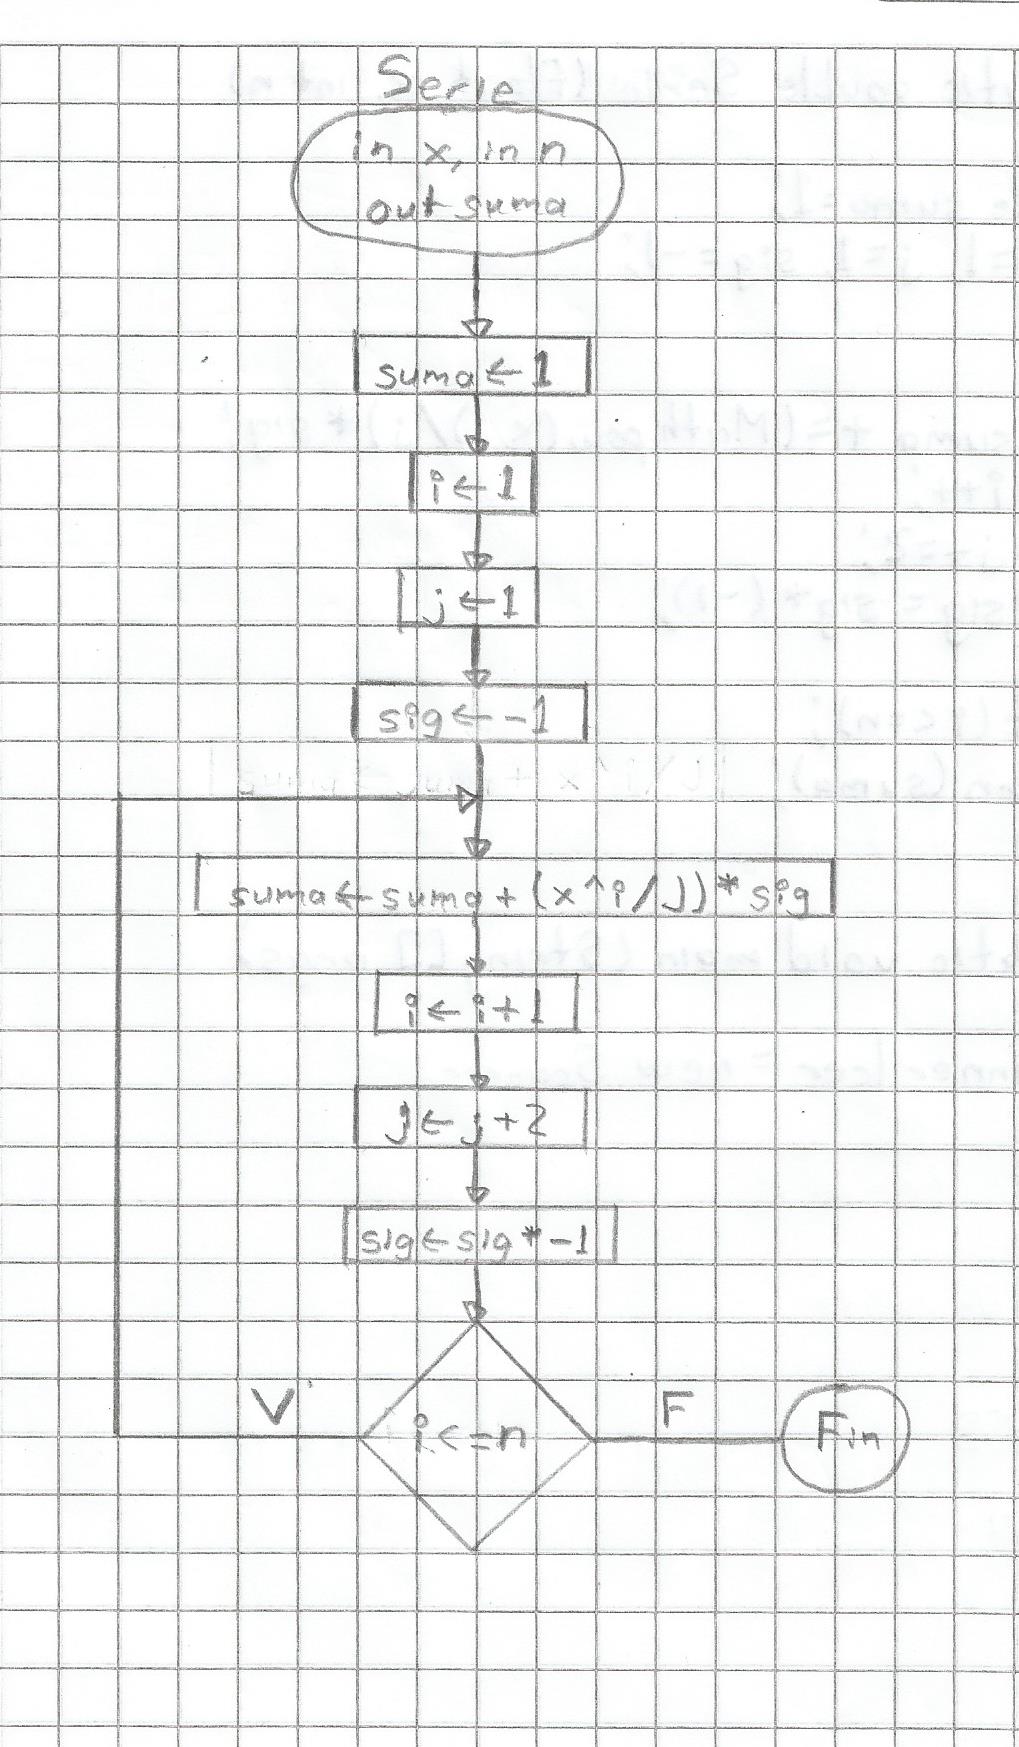 Serie
in x, in n
out suma
suma ← 1
i ← 1
j ← 1
sig ← -1
suma ← suma + (x^i/j))* sig
i ← i+1
j ← j+2
sig ← sig * -1
i <= n
V
F
Fin